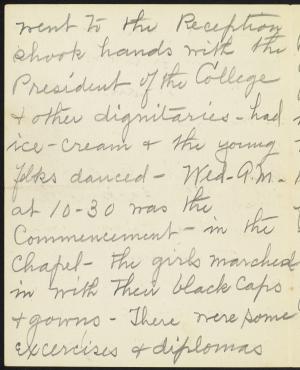 went to the Reception
shook hands with the
President of the College
& other dignitaries - had
ice-cream & the young
folks danced - Wed-A.M.-
at 10-30 was the
Commencement - in the
Chapel - the girls marched
in with their black caps
& gowns - There were some
excercises & diplomas